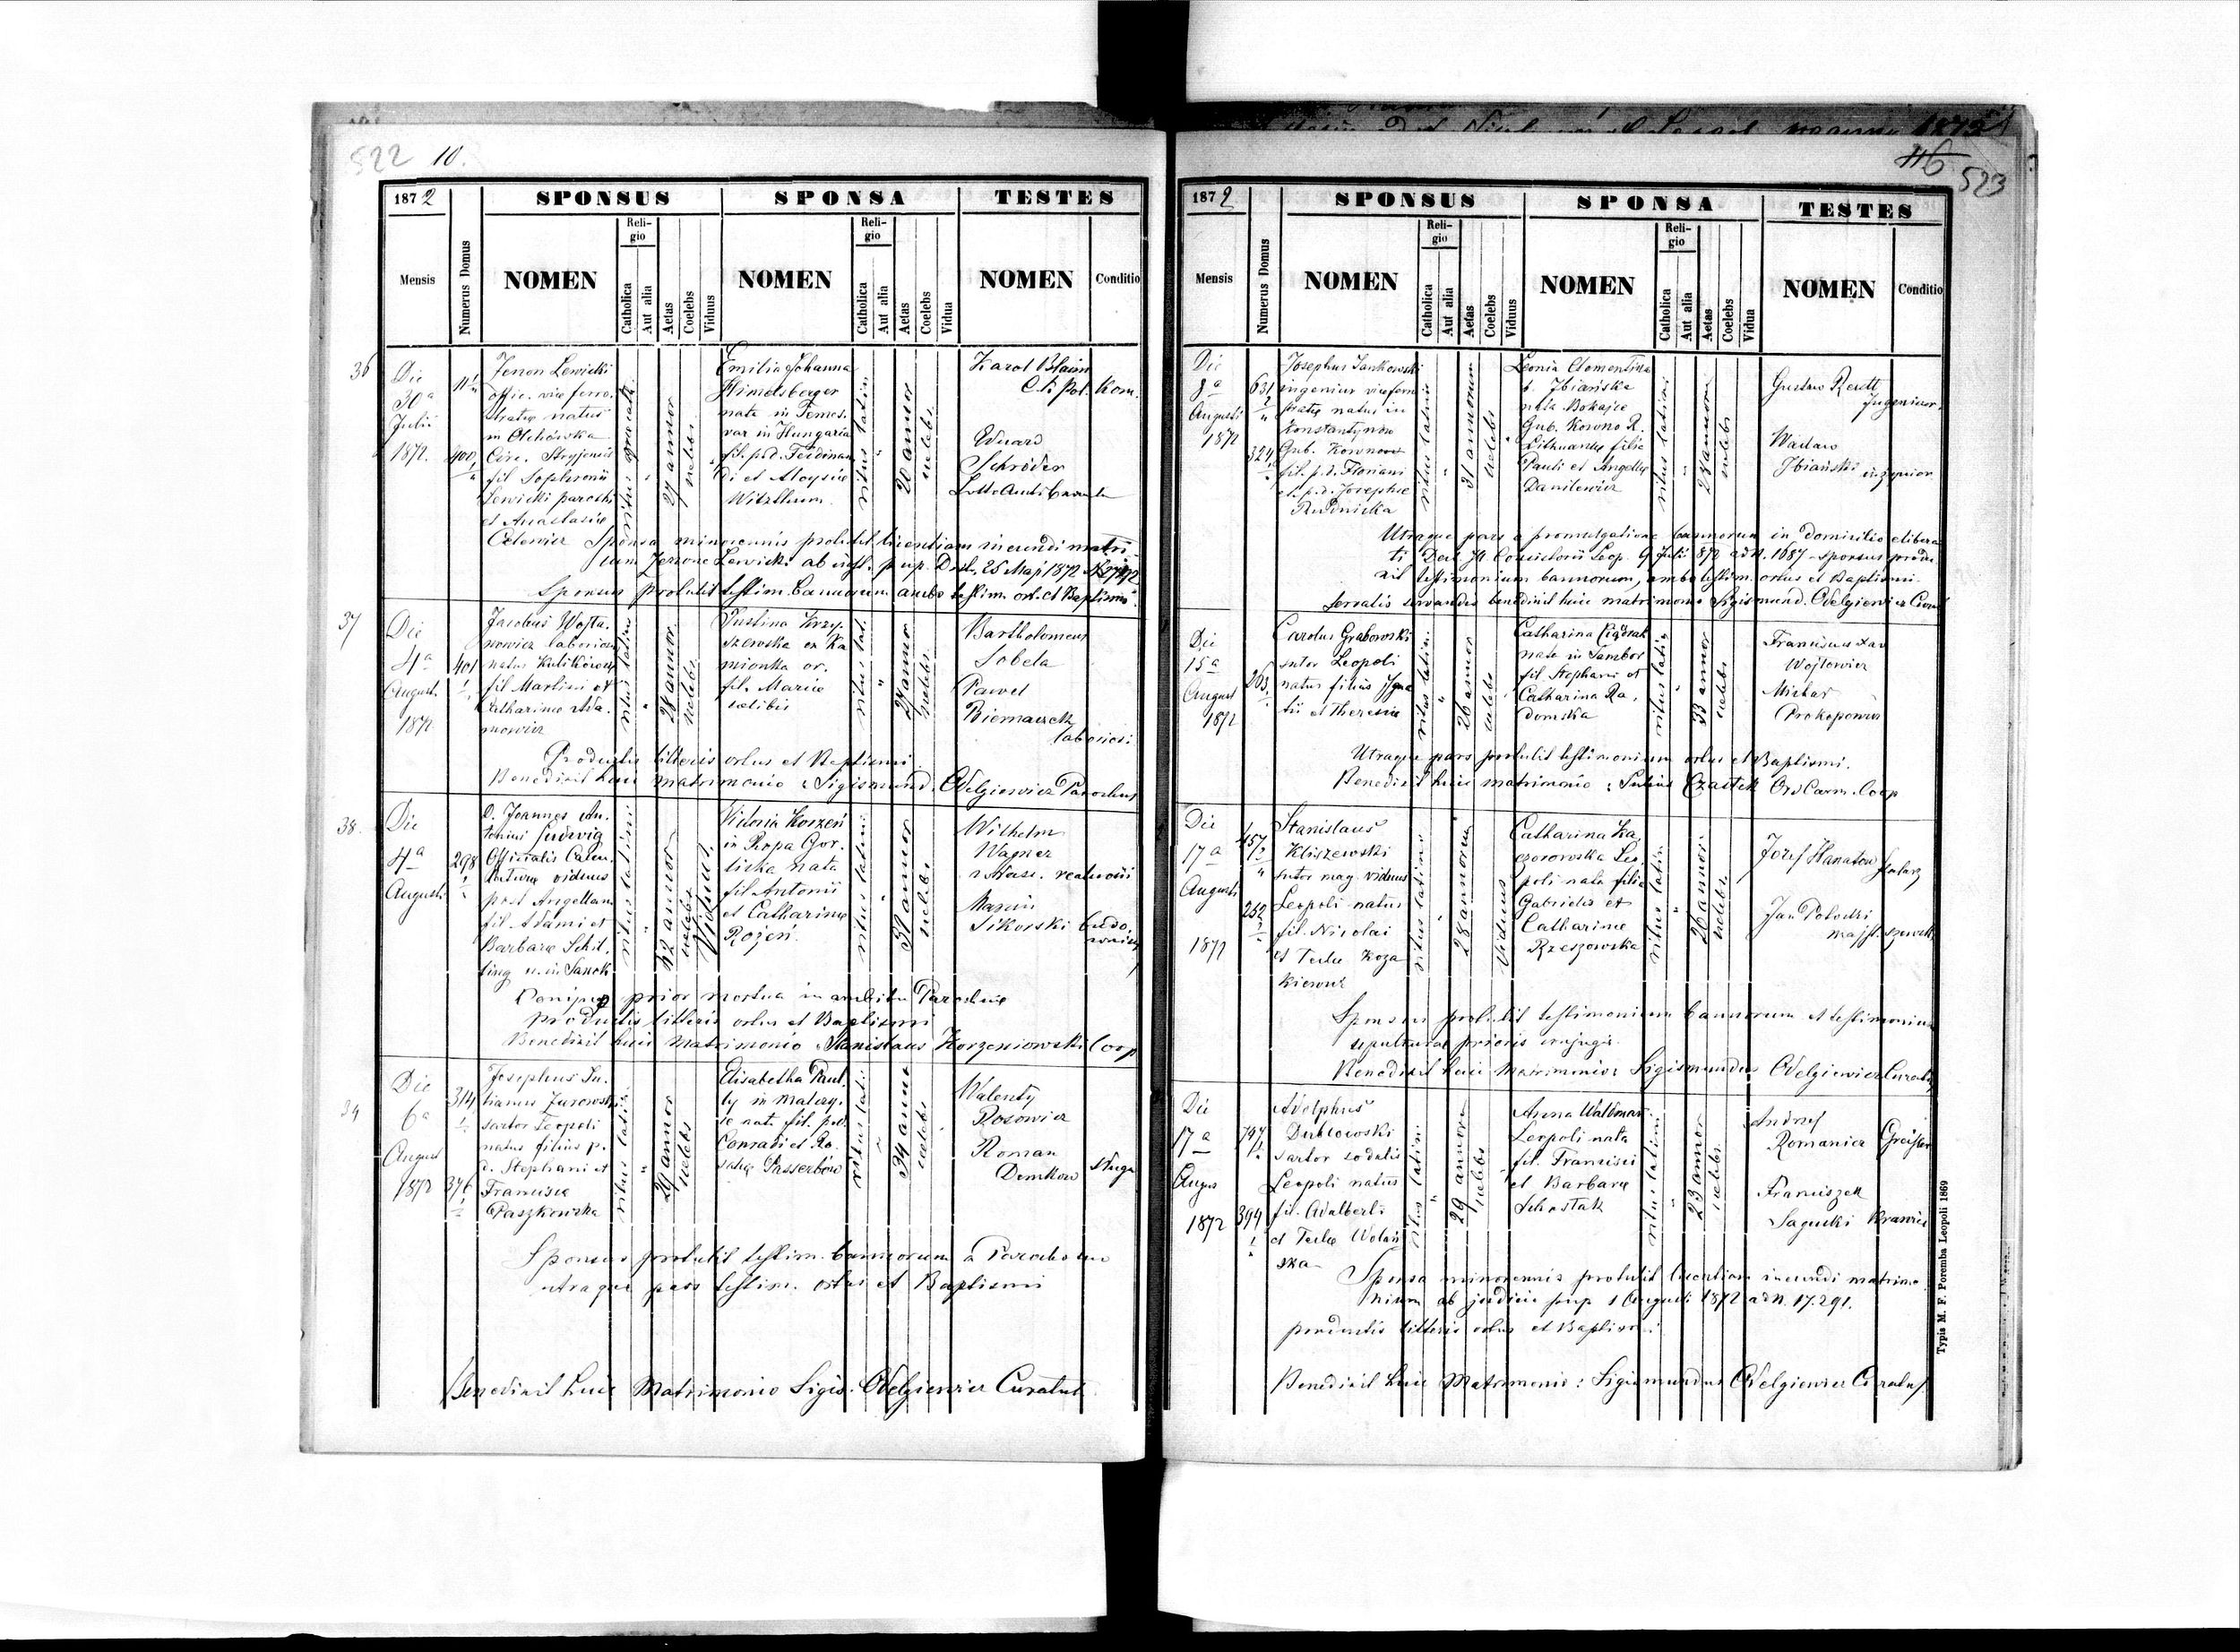 522 10.
1872 SPONSUS SPONSA TESTES
Mensis Numerus Domus NOMEN Religio Catholica Aut alia Aetas Coelebs Viduus NOMEN Religio Catholica Aut alia Aetas Coelebs Vidua NOMEN Conditio
36
Die
30a
Julii
1872.
400
Zenon Lewicki
offic. viae ferro.
stratae natus
in Olchówka
Circ. Stryjensis
fil Sophronii
Lewicki parochi
et Anastasiae
27 annor
coelebs
Emilia Johanna
Himelsberger
nata in Temes.
var in Hungaria
fil. p.d. Ferdinan
di et Aloysiae
Witzthum
ritus latin
20 annor
coelebs
Karol Blaim
C. k. Pol. Kom.
Eduard
Schröder
Sponsa minorennis protulit licentiam ineundi matri
cum Zenone Lewicki ab
25 Maji 1872
Sponsus protulit testim. bannorum ambo testim. ort. et Baptismi
37
Die
4a
August.
1872
401
Jacobus Wojta.
nowicz laborios
natus Kulikow
fil Martini et
Catharinae Ada.
mowicz
ritus latin
28 annor.
coelebs
Justina Krzy.
szewska ex Ka
mionka or.
fil. Mariae
coelibis
ritus lat.
27 annor
coelebs
Bartholomeus
Sobela
Paweł
laboriosi.
Productis litteris ortus et Baptismi
Benedixit huic matrimonio: Sigismund. Odelgiewicz Parochus
38.
Die
4a
Augusti
298
D. Joannes An.
tonius Ludwig
Officialis
viduus
post Angellam
fil Adami et
Barbarae Schil.
ling n. in Sanok
ritus latini
52 annor
Viduus
Victoria Korzeń
in Ropa Gor.
licka nata
fil Antonii
et Catharinae
Rożeń
ritus latini
31 annor
coelebs
Wilhelm
Wagner
Marcin
Sikorski budo.
wniczy
prior mortua in ambitu Parochiae
productis litteris ortus et Baptismi
Benedixit huic Matrimonio Stanislaus Korzeniowski Coop
Die
6a
August
1872
314
376
Josephus Ju.
lianus Żurowski
sartor Leopoli
natus filius p.
d. Stephani et
Franciscae
Paszkowska
ritus latin
29 annor
coelebs
Elisabetha Paul.
ly in
nata fil. p.d.
Conradi et Ro.
saliae
ritus latin
34 annor
coelebs
Walenty
Rosowicz
Roman
Demkow sługa
Sponsus protulit testim. bannorum a Parocho suo
utraque pars testim. ortus et Baptismi
Benedixit huic Matrimonio Sigis. Odelgiewicz Curatus
1872 523
1872 SPONSUS SPONSA TESTES
Mensis Numerus Domus NOMEN Religio Catholica Aut alia Aetas Coelebs Viduus NOMEN Religio Catholica Aut alia Aetas Coelebs Vidua NOMEN Conditio
Die
8a
Augusti
1872
631
324
Josephus Jankowski
ingenieur viae ferro
stratae natus in
Konstantynow
Gub. Kownow
fil. p.d. Floriani
et p.d. Josephae
Rudnicka
ritus latini
31 annorum
coelebs
Leonia Clementina
Zbiańska
nata Bokajce
Gub. Kowno R.
Lithuaniae filia
Pauli et Angelae
Danilewicz
ritus latini
28 annorum
coelebs
Gustav
Ingenieur.
Wacław
Zbiański inżynier
Utraque pars a promulgatione bannorum in domicilio libera
ti Decr. Consistorii Leop. 9 Julii 872 ad N. 1687 - sponsus produ
xit testimonium bannorum, ambo testim. ortus et Baptismi.
Servatis servandis benedixit huic matrimonio Sigismund. Odelgiewicz
Die
15a
August
1872
263
Carolus Grabowski
sutor Leopoli
natus filius Igna
tii et Theresiae
ritus latin.
26 annor
coelebs
Catharina
nata in Sambor
fil Stephani et
Catharina Ra.
domska
ritus latin
33 annor
coelebs
Franciscus Xav
Wojtowicz
Michał
Prokopowicz
Utraque pars protulit testimonium ortus et Baptismi.
Benedixit huic matrimonio: Julius Czastek Ord Carm. Coop
Die
17a
Augusti
1872
457
252
Stanislaus
Kliszewski
sutor mag. viduus
Leopoli natus
fil. Nicolai
et Teclae Koza
kiewicz
ritus latini
28 annorum
Viduus
Catharina Ka
czorowska Leo.
poli nata filia
Gabrielis et
Catharinae
Rzeszowska
ritus latin
26 annor
coelebs
Józef Hanatow
Jan
majst. szewski
Sponsus protulit testimonium bannorum et testimonium
sepulturae prioris conjugis
Benedixit huic Matrimonio: Sigismundus Odelgiewicz Curatus
Die
17a
Augus
1872
797
394
Adolphus
Dublowski
sartor sodalis
Leopoli natus
fil. Adalberti
et Teclae Wolań
ska
ritus latin
29 annor
coelebs
Anna Waldman
Leopoli nata
fil. Francisci
et Barbarae
Schostak
ritus latini
23 annor
coelebs
Andrzej
Romanicz
Franciszek
Sagucki Krawiec
Sponsa minorennis protulit licentiam ineundi matrimo
nium ab judicio pup 1 Augusti 1872 ad N. 17.291.
productis litteris ortus et Baptismi
Benedixit huic Matrimonio: Sigismundus Odelgiewicz Curatus
Typis M. F. Poremba Leopoli 1869